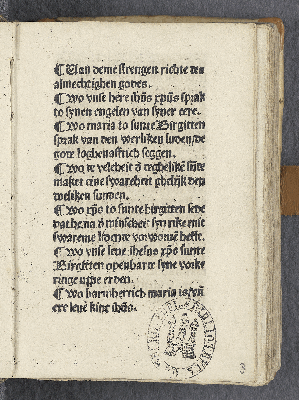 ¶ Uan deme strengen richte des
almechtighen godes.
¶ Wo vnse here ihūs xpūs sprak
to synen engelen van syner ere.
¶ Wo maria to sunte Birgitten
sprak van den werliken luden de
gote loghenaftich seggen.
¶ Wo de velcheit d' degheliker sūde
maket eine swarcheit ghelijk den
sunden.
¶ Wo xpūs to sunte birgitten sede
dat he na d' minscheit syn rike mit
swareme vorworuē hefft.
¶ Wo vnse leue ihesus xpūs sunte
Birgitten openbarte syne vorke
ringe uppe erden.
¶ Wo barmhertich maria is vn̄
ere leue kint ihūs.